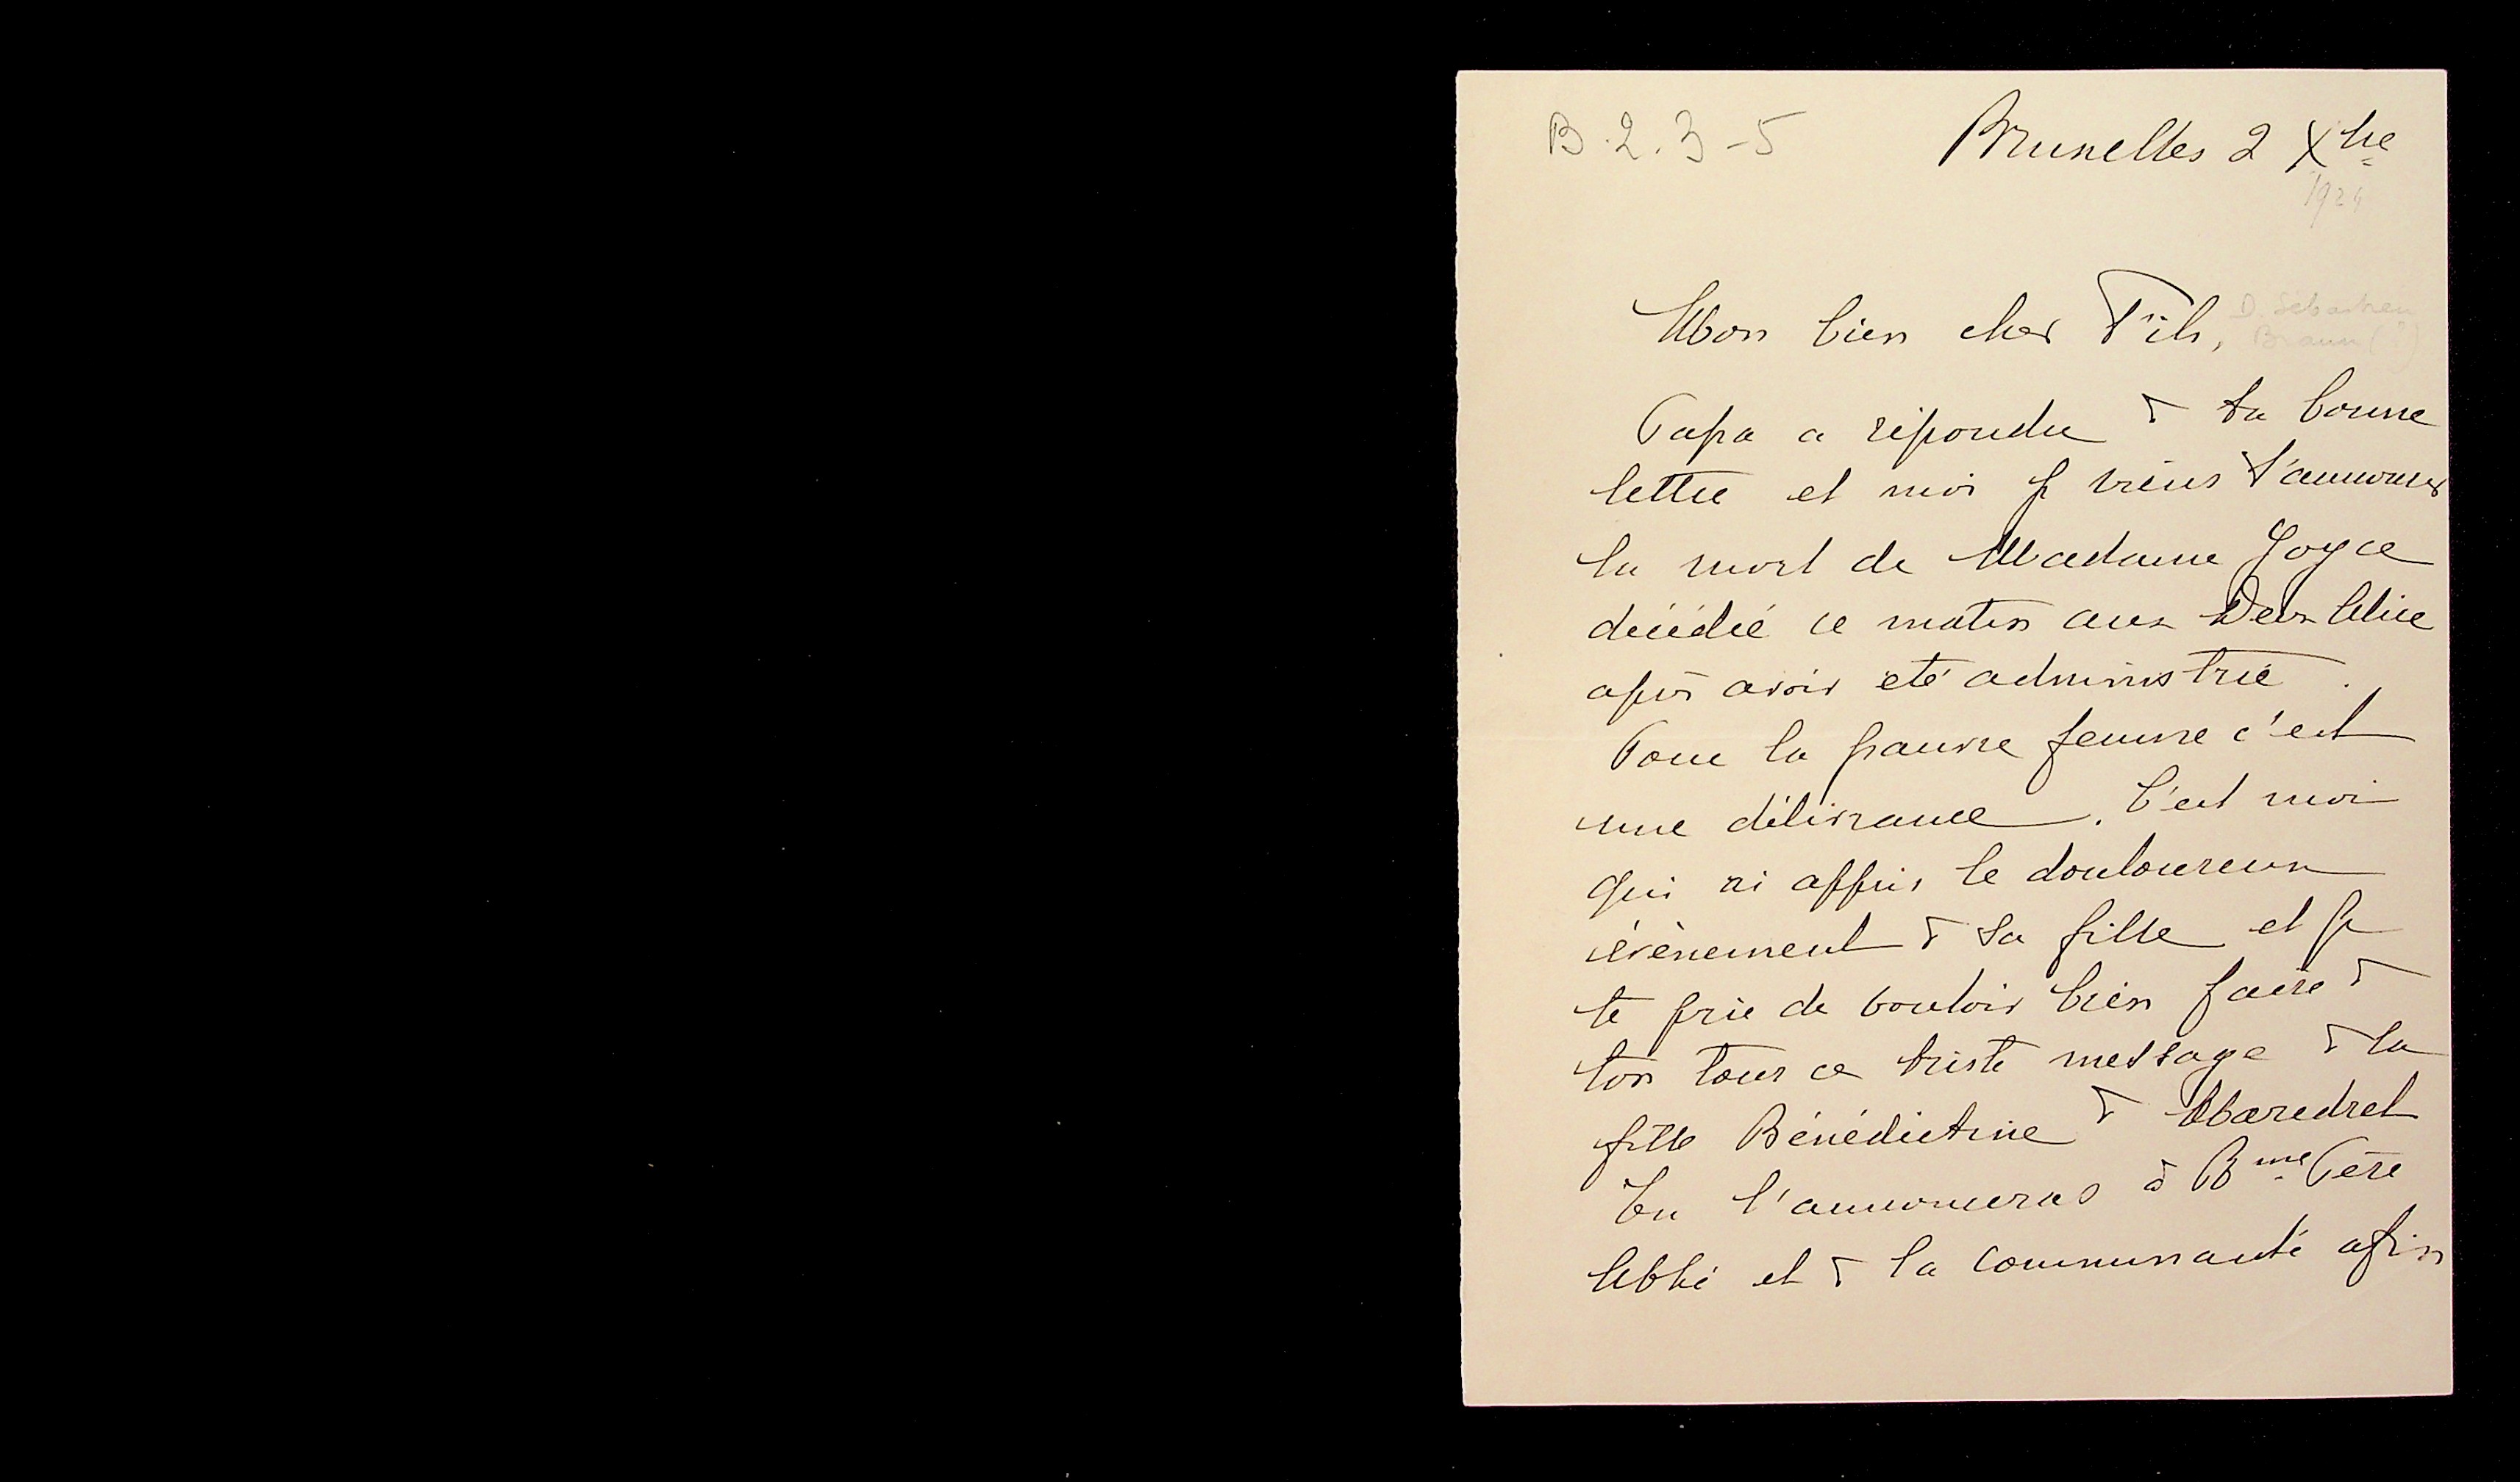 B.2.3-5
Bruxelles 2 Xbre
1924
Mon bien cher Fils,
D. Sébastien
Braun (?)
Papa a répondu à ta bonne
lettre et moi je viens t'annoncer
la mort de Madame Goyce
décédée ce matin aux Deux Alice
après avoir été administrée.
Pour la pauvre femme c'est
une délivrance. C'est moi
qui ai appris le douloureux
évènement à sa fille et je
te prie de vouloir bien faire à
ton tour ce triste message à la
fille Bénédictine à Maredret
Tu l'annonceras à Rme Père
Abbé et à la communauté afin